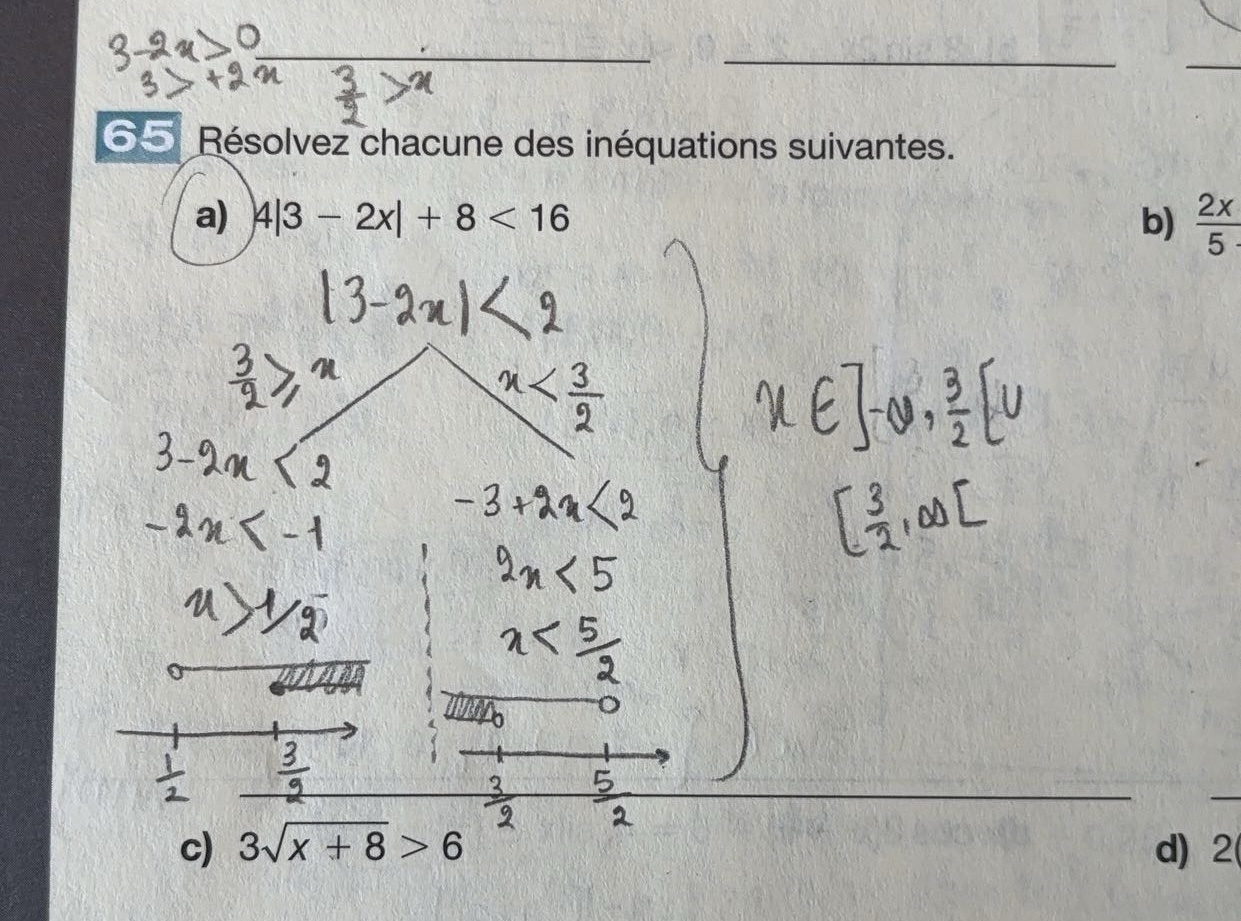 3-2x>0
3>+2x 3/2 >x
65 Résolvez chacune des inéquations suivantes.
a) 4|3 − 2x| + 8 < 16
b) 2x/5
|3-2x|<2
3/2 ⩾ x
x < 3/2
3-2x<2
-2x<-1
x>1/2
-3+2x<2
2x<5
x<5/2
1/2 3/2
3/2 5/2
x ∈ ]-∞, 3/2[ ∪
[3/2, ∞[
c) 3√(x + 8) > 6
d) 2(